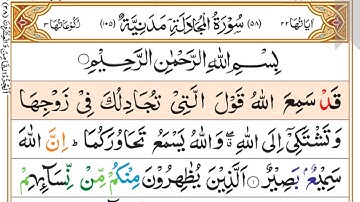 اٰيَاتُهَا ٢٢ (٥٨) سُوْرَةُ الْمُجَادَلَةِ مَدَنِيَّةٌ (١٠٥) رُكُوْعَاتُهَا ٣
بِسْمِ اللّٰهِ الرَّحْمٰنِ الرَّحِيْمِ
قَدْ سَمِعَ اللّٰهُ قَوْلَ الَّتِيْ تُجَادِلُكَ فِيْ زَوْجِهَا
وَتَشْتَكِيْٓ اِلَى اللّٰهِ ۖ وَاللّٰهُ يَسْمَعُ تَحَاوُرَكُمَا ؕ اِنَّ اللّٰهَ
سَمِيْعٌۢ بَصِيْرٌ ١ اَلَّذِيْنَ يُظٰهِرُوْنَ مِنْكُمْ مِّنْ نِّسَآئِهِمْ